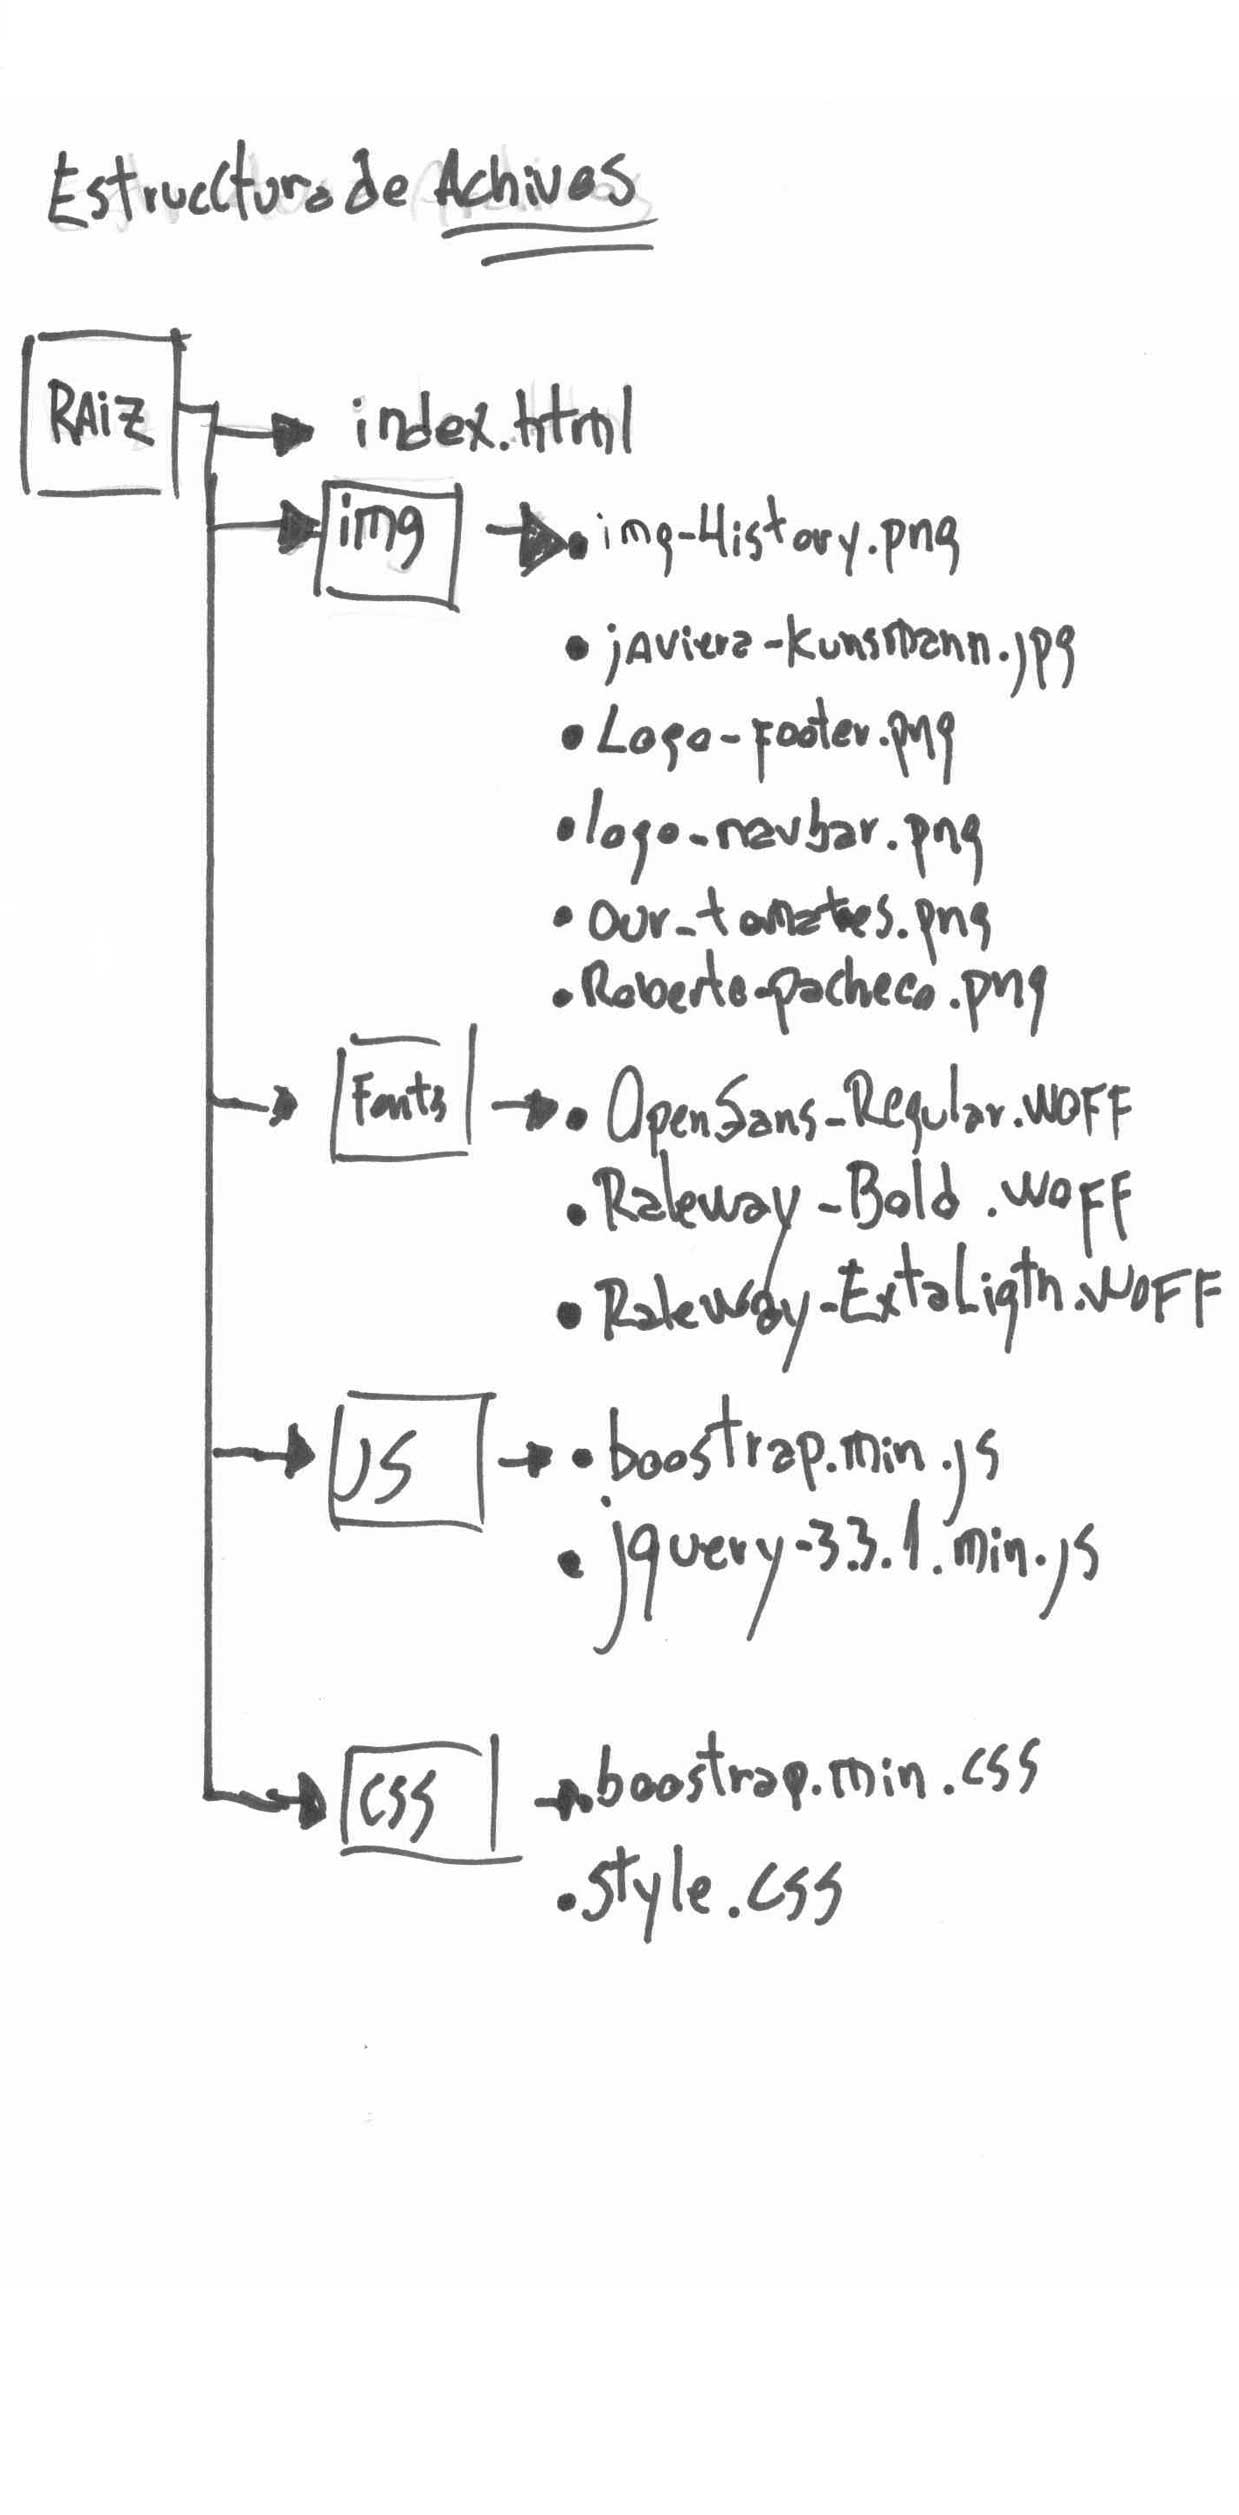 Estrucctura de Achivos
RAiz
index.html
img
img-History.png
javiera-kunsmann.jpg
Logo-Footer.png
logo-navbar.png
our-tomates.png
Roberto-pacheco.png
Fonts
OpenSans-Regular.WOFF
Raleway-Bold.WOFF
Raleway-ExtaLigth.WOFF
JS
boostrap.min.js
jquery-3.3.1.min.js
css
boostrap.min.css
style.css